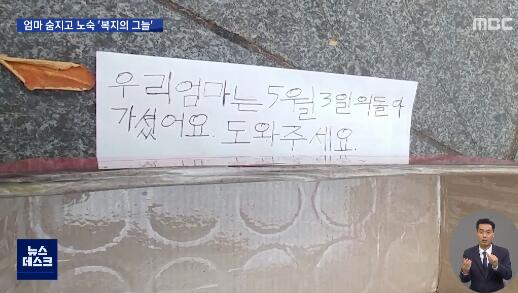 엄마 숨지고 노숙 '복지의 그늘'
MBC
우리엄마는 5월 3일에돌아
가셨어요. 도와주세요.
뉴스
데스크